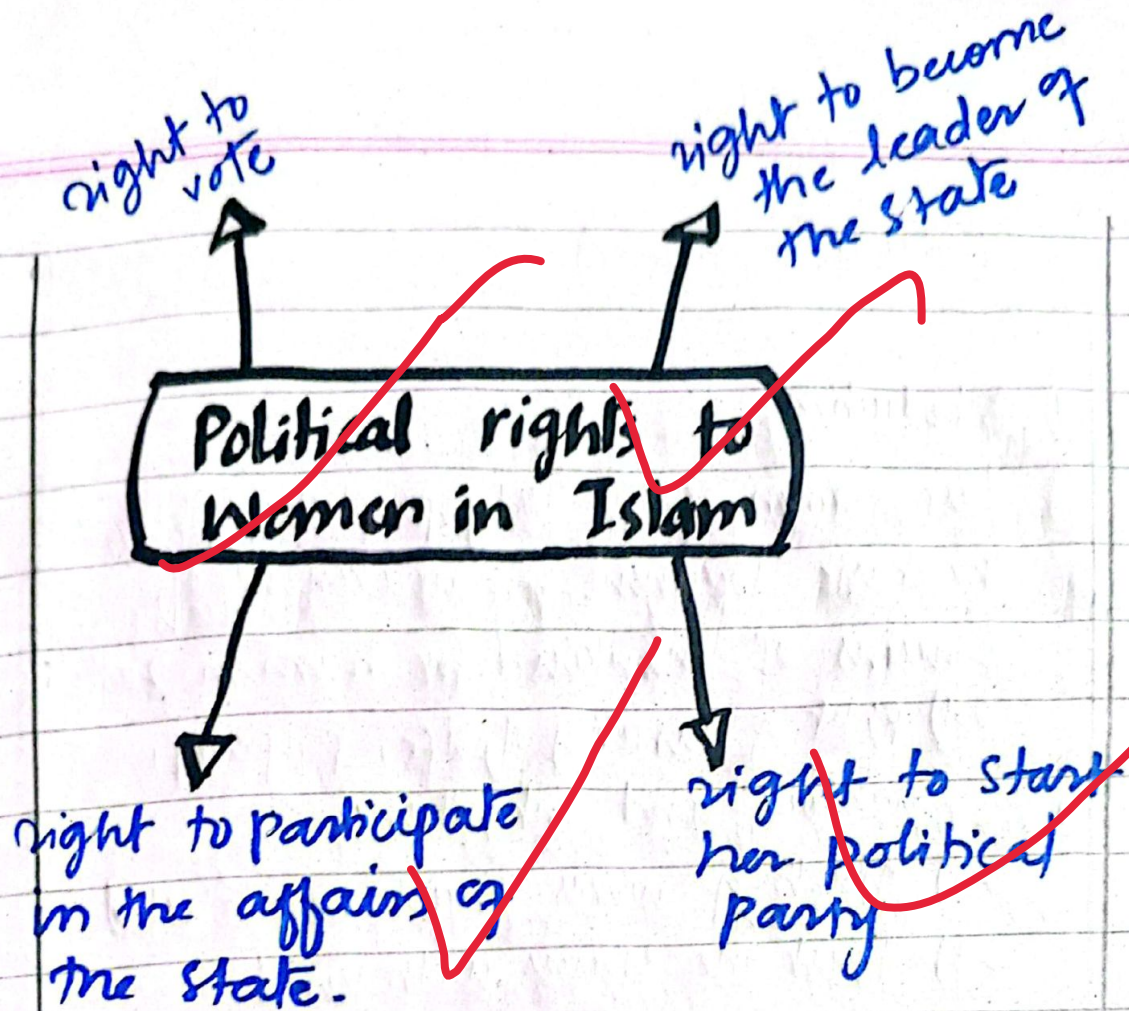 right to
vote
right to become
the leader of
the state
Political rights to
Women in Islam
right to participate
in the affairs of
the state.
right to start
her political
party